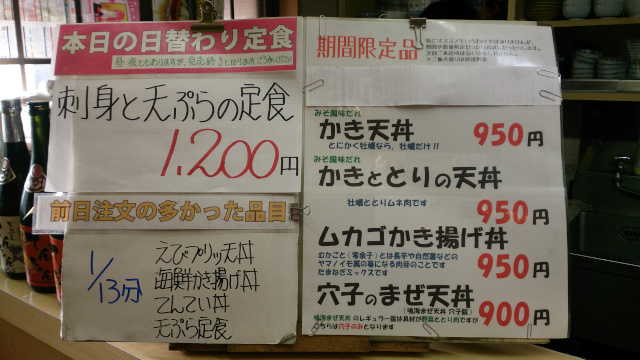 本日の日替わり定食
昼 夜ともありますが、完売終了となります。ご了承ください
刺身と天ぷらの定食
1,200円
前日注文の多かった品目
1/13分
えびプリッ天丼
海鮮かき揚げ丼
てんてい丼
天ぷら定食
期間限定品
みそ風味だれ
かき天丼 950円
とにかく牡蠣なら、牡蠣だけ!!
みそ風味だれ
かきととりの天丼
牡蠣ととりムネ肉です 950円
ムカゴかき揚げ丼
むかごと(零余子)とは長芋や自然薯などの
ヤマノイモ属の蔓になる肉芽のことです
たまねぎミックスです
950円
穴子のまぜ天丼 900円
(鳴海まぜ天丼 穴子版)
鳴海まぜ天丼 のレギュラー版は具材が野菜ととり肉ですが
こちらは穴子のみとなります